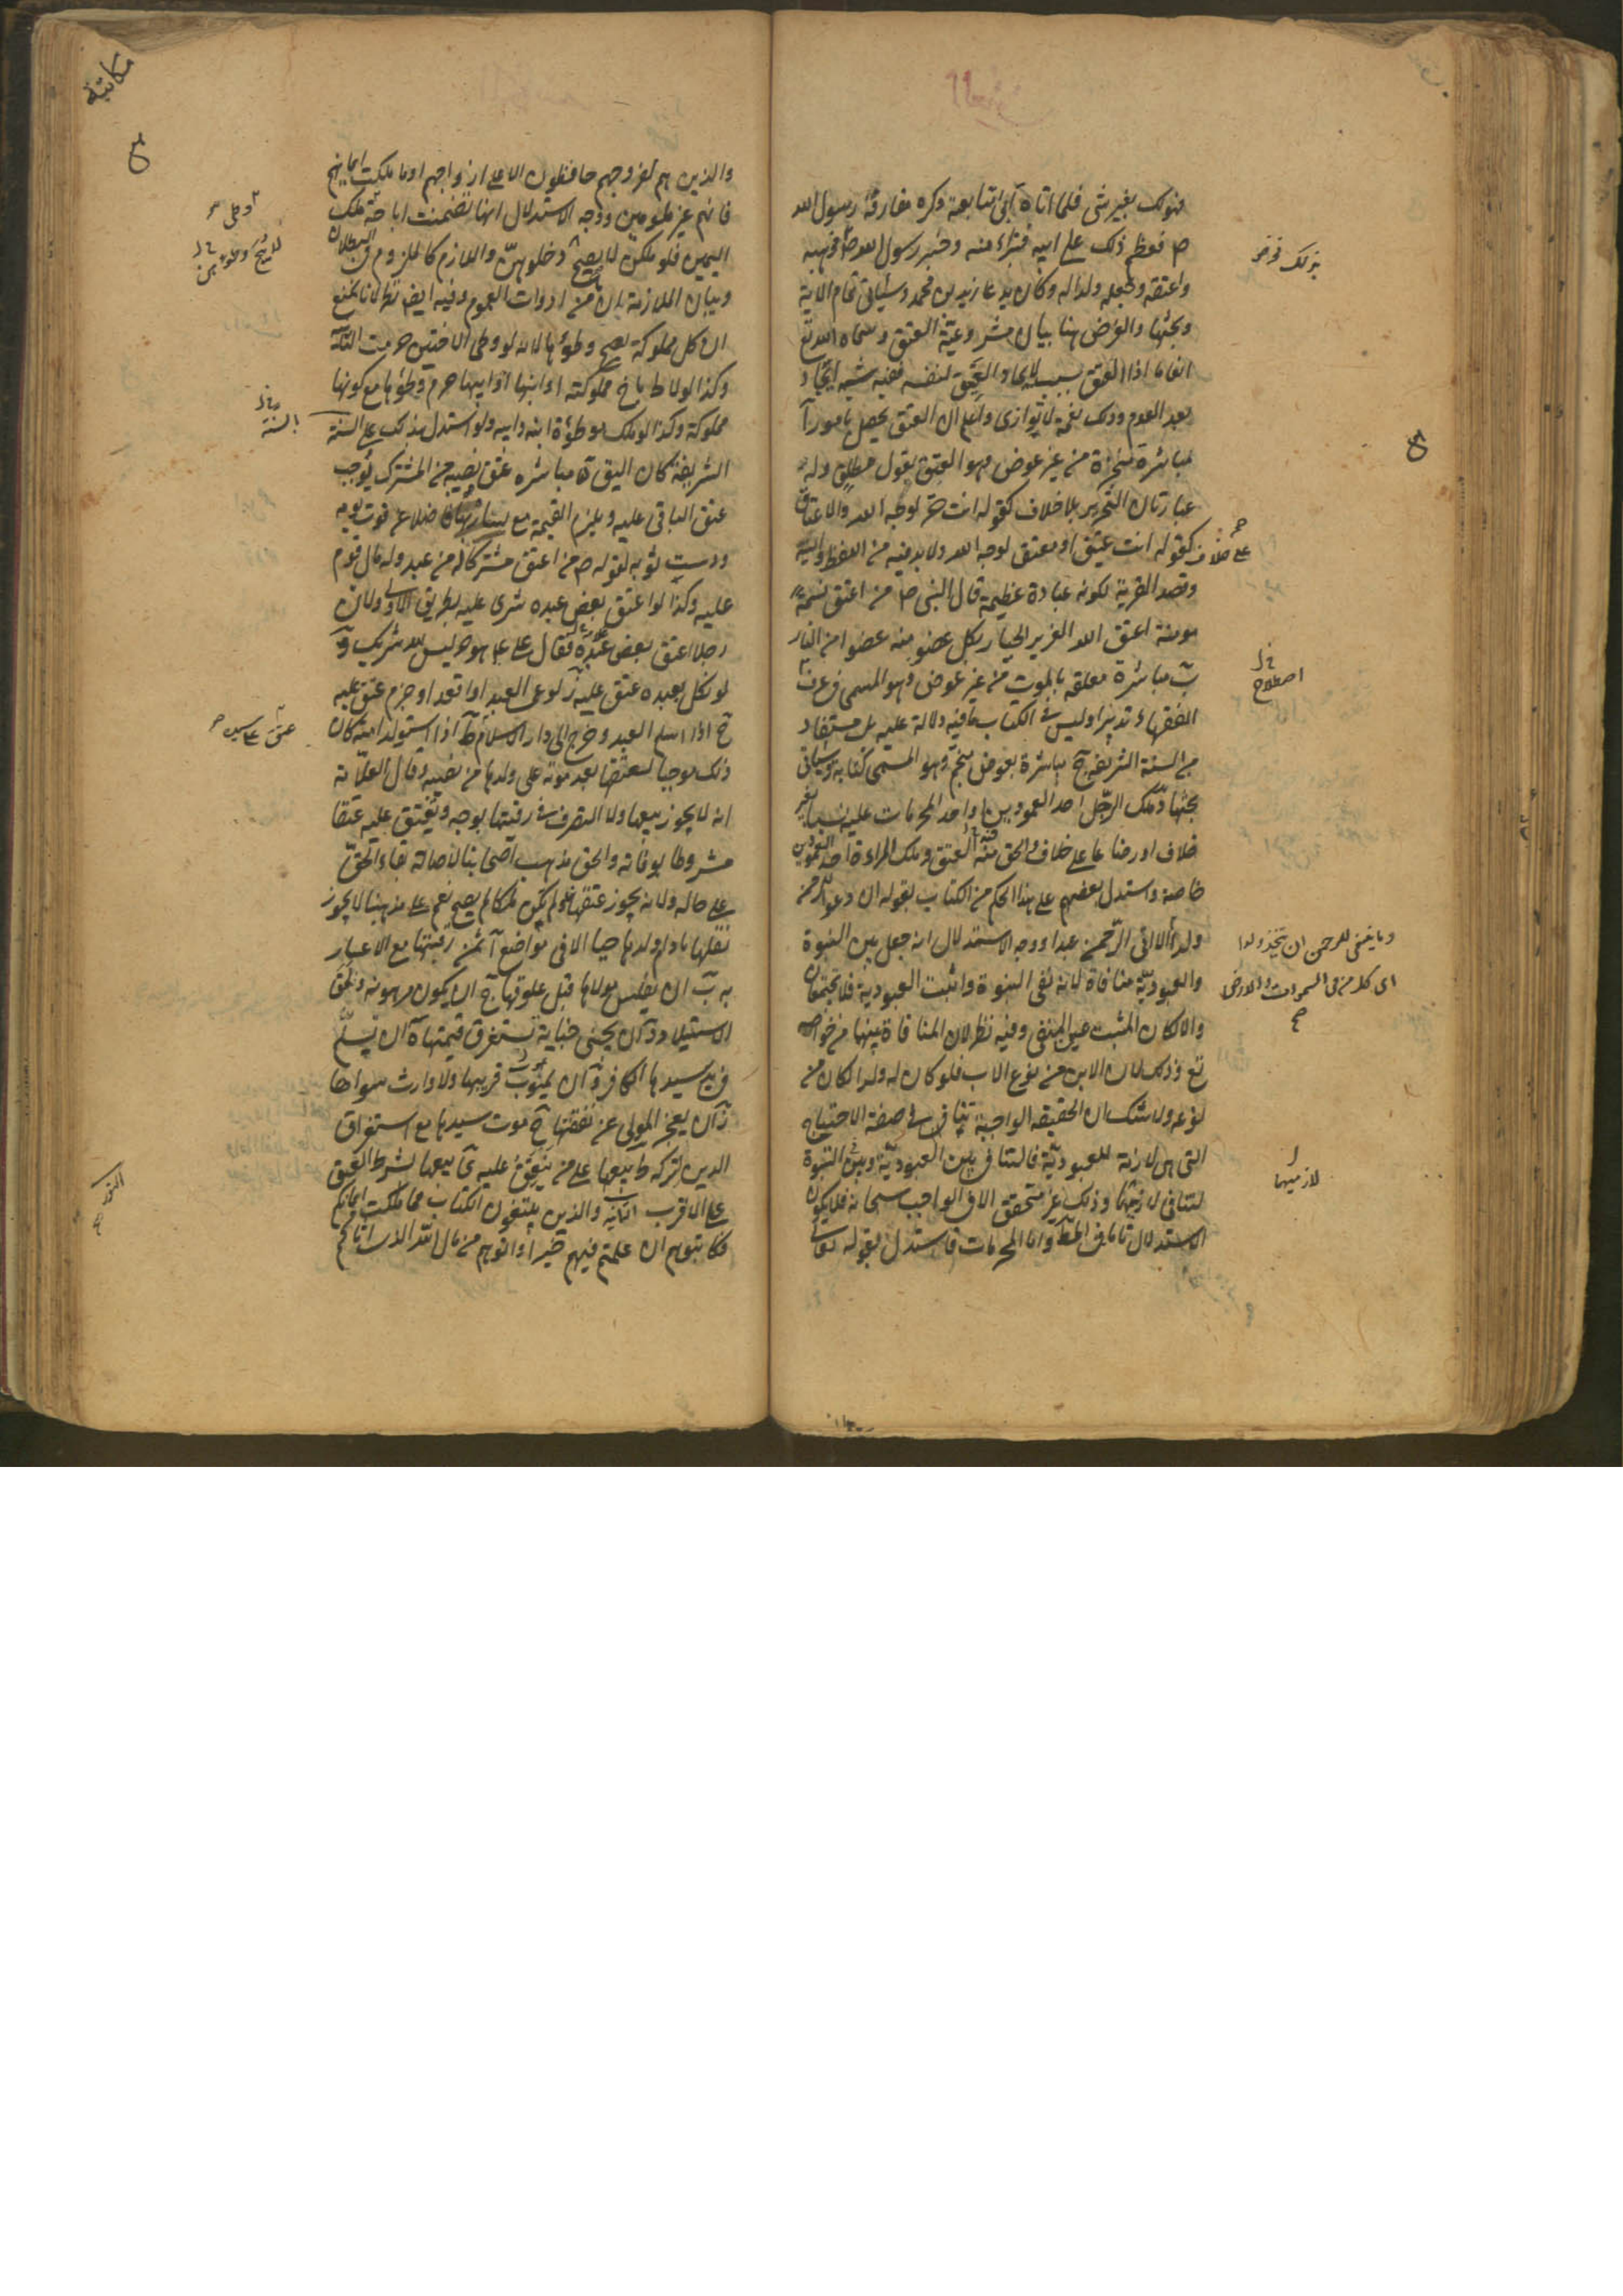 فهو لك بغير شئ فلما اتاه ابى اتباعه وكره مفارقة رسول الله
ص فعظم ذلك على ابيه فتبراء منه وخبر رسول الله ص فوهبه
واعتقه وجعله ولدا له وكان يدعا زيد بن محمد وسيأتى تمام الاية
وبحثها والغرض هنا بيان مشروعية العتق وسماه الله تع
انعاما اذ العتق سبب لايجاد العتيق لنفسه ففيه شبه ايجاد
بعد العدم وذلك نعمة لا توازى واعلم ان العتق يحصل بامور آ
مباشرة منجزة من غير عوض وهو العتق بقول مطلق وله
عبارتان التحرير بلا خلاف كقوله انت حر لوجه الله والاعتاق
على خلاف كقوله انت عتيق او معتق لوجه الله ولا بد فيه من اللفظ والنية
وقصد القربة لكونه عبادة عظيمة قال النبى ص من اعتق نسمة
مومنة اعتق الله العزيز الجبار بكل عضو منه عضوا من النار
ب مباشرة معلقة بالموت من غير عوض وهو المسمى فى عرف
الفقهاء تدبيرا وليس فى الكتاب ما فيه دلالة عليه بل مستفاد
من السنة الشريفة ج مباشرة بعوض منجم وهو المسمى كتابة وسيأتى
بحثها د ملك الرجل احد العمودين او احد المحرمات عليه نسبا بغير
خلاف او رضاعا على خلاف والحق منه العتق وملك المراءة احد العمودين
خاصة واستدل بعضهم على هذا الحكم من الكتاب بقوله ان دعوا للرحمن
ولدا الا اتى الرحمن عبدا ووجه الاستدلال انه جعل بين البنوة
والعبودية منافاة لانه نفى البنوة واثبت العبودية فلا يجتمعان
والا لكان المثبت عين المنفى وفيه نظر لان المنافاة بينهما من خواصه
تع وذلك لان الابن من نوع الاب فلو كان له ولد لكان من
نوعه ولا شك ان الحقيقة الواجبة تنافى صفة الاحتياج
التى هى لازمة للعبودية فالتنافى بين العبودية وبين البنوة
لتنافى لازميهما وذلك غير متحقق الا فى الواجب سبحانه فلا يكون
الاستدلال تاما فى المط واما المحرمات فاستدل بقوله تعالى
بنزلك فرض
اصطلاح
وما ينبغى للرحمن ان يتخذ ولدا
اى كل من فى السموات والارض
لازميهما
مكاتبة
والذين هم لفروجهم حافظون الا على ازواجهم او ما ملكت ايمانهم
فانهم غير ملومين ووجه الاستدلال انها تضمنت اباحة ملك
اليمين فلو ملكن لما يصح دخولهن واللازم كالملزوم فى البطلان
وبيان الملازمة بان من ادوات العموم وفيه ايض نظر لانا نمنع
ان كل مملوكة يصح وطؤها لانه لو وطى الاختين حرمت الثانية
وكذا لو لاط باخ مملوكته او ابنها او ابيها حرم وطؤها مع كونها
مملوكة وكذا لو ملك موطؤة ابنه وابيه ولو استدل بذلك على السنة
الشريفة كان اليق ه مباشره عتق نصيبه من المشترك يوجب
عتق الباقى عليه ويلزم القيمة مع يساره فاضلا عن قوت يومه
ودست ثوبه لقوله ص من اعتق مشتركا له من عبد وله مال قوم
عليه وكذا لو اعتق بعض عبده سرى عليه بطريق الاولى ولان
رجلا اعتق بعض عبده فقال على ع هو حر ليس لله شريك و
لو نكل بعبده عتق عليه ز لو عمى العبد او اقعد او جزم عتق عليه
ح اذا اسلم العبد وخرج الى دار الاسلام ط اذا استولد امته كان
ذلك موجبا لعتقها بعد موته على ولدها من نصيبه وقال العلامة
انه لا يجوز بيعها ولا التصرف فى رقبتها بوجه ويعتق عليه عتقا
مشروطا بوفاته والحق مذهب اصحابنا لاصالة بقاء الحق
على حاله ولانه يجوز عتقها ولو لم يكن ملكا لم يصح نعم على مذهبنا لا يجوز
نقلها ما دام ولدها حيا الا فى مواضع آ ثمن رقبتها مع الاعسار
به ب ان يفلس مولاها قبل علوقها ج ان يكون مرهونة وتلحق
الاستيلاد د ان يجنى جناية تستغرق قيمتها ه ان تسلم
فى يد سيدها الكافر و ان يموت قريبها ولا وارث سواها
ز ان يعجز المولى عن نفقتها ح موت سيدها مع استغراق
الدين لتركه ط بيعها على من ينعتق عليه ى بيعها بشرط العتق
على الاقرب الثانية والذين يبتغون الكتاب مما ملكت ايمانكم
فكاتبوهم ان علمتم فيهم خيرا واتوهم من مال الله الذى اتاكم
بالسنة
عتق على سيده
الذى